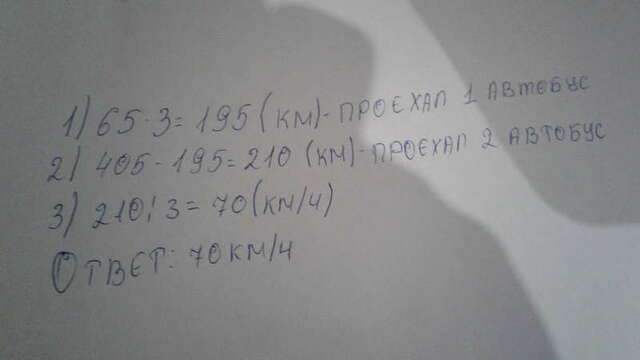 1) 65·3=195(км)-проєхал 1 автобус
2) 405-195=210 (км)-проєхал 2 автобус
3) 210:3=70(км/ч)
Ответ: 70км/ч